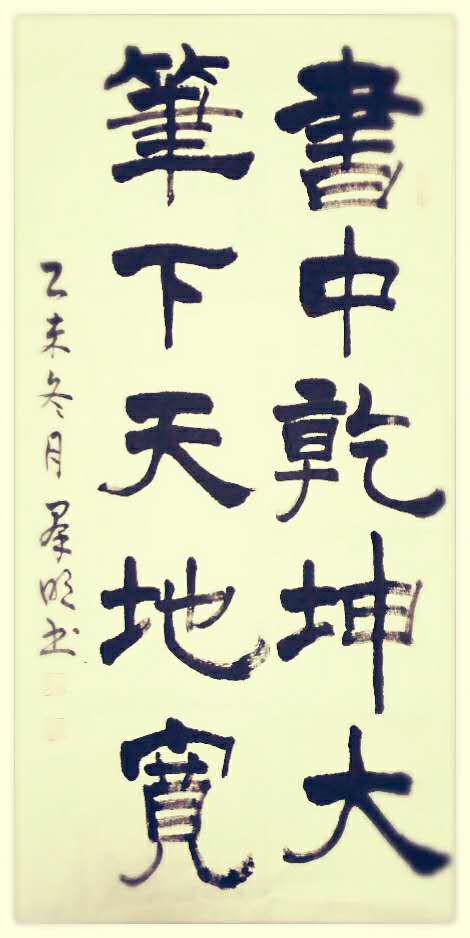 書中乾坤大
筆下天地寬
乙未冬月羣明书